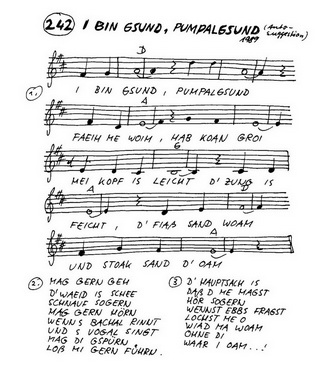 242 I BIN GSUND, PUMPALGSUND (Auto-
suggestion)
1989
D
1. I BIN GSUND, PUMPALGSUND
A
FÆIH ME WOIH, HAB KOAN GROI
G
MEI KOPF IS LEICHT D'ZUNG IS
A D
FEICHT, D'FIAß SAND WOAM
A D
UND STOAK SAND D'OAM
2. MAG GERN GEH
D'WAEID IS SCHEE
SCHNAUF SOGERN
MAG GERN HÖRN
WENNS BACHAL RINNT
UND S VOGAL SINGT
MAG DI GSPÜRN
LOß MI GERN FÜHRN.
3. D'HAUPTSACH IS
DAß D ME MAGST
HÖR SOGERN
WENNST EBBS FRAGST
LOCHST ME O
WIAD MA WOAM
OHNE DI
WAAR I OAM...!